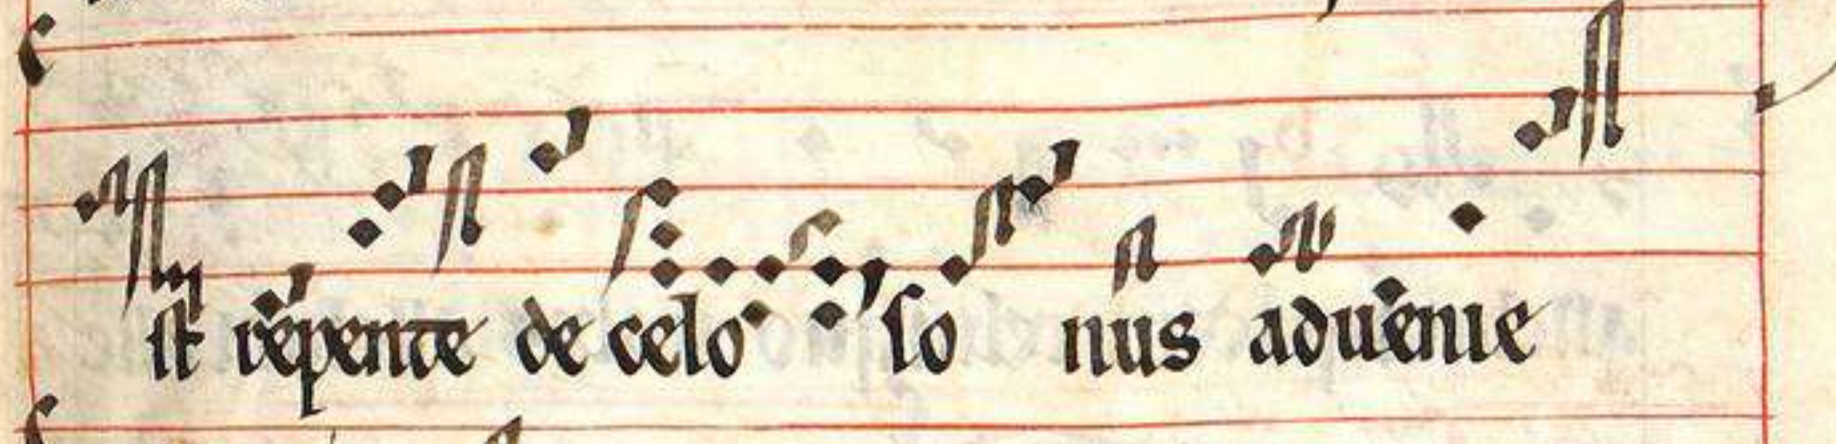 st repente de celo so nus advenie